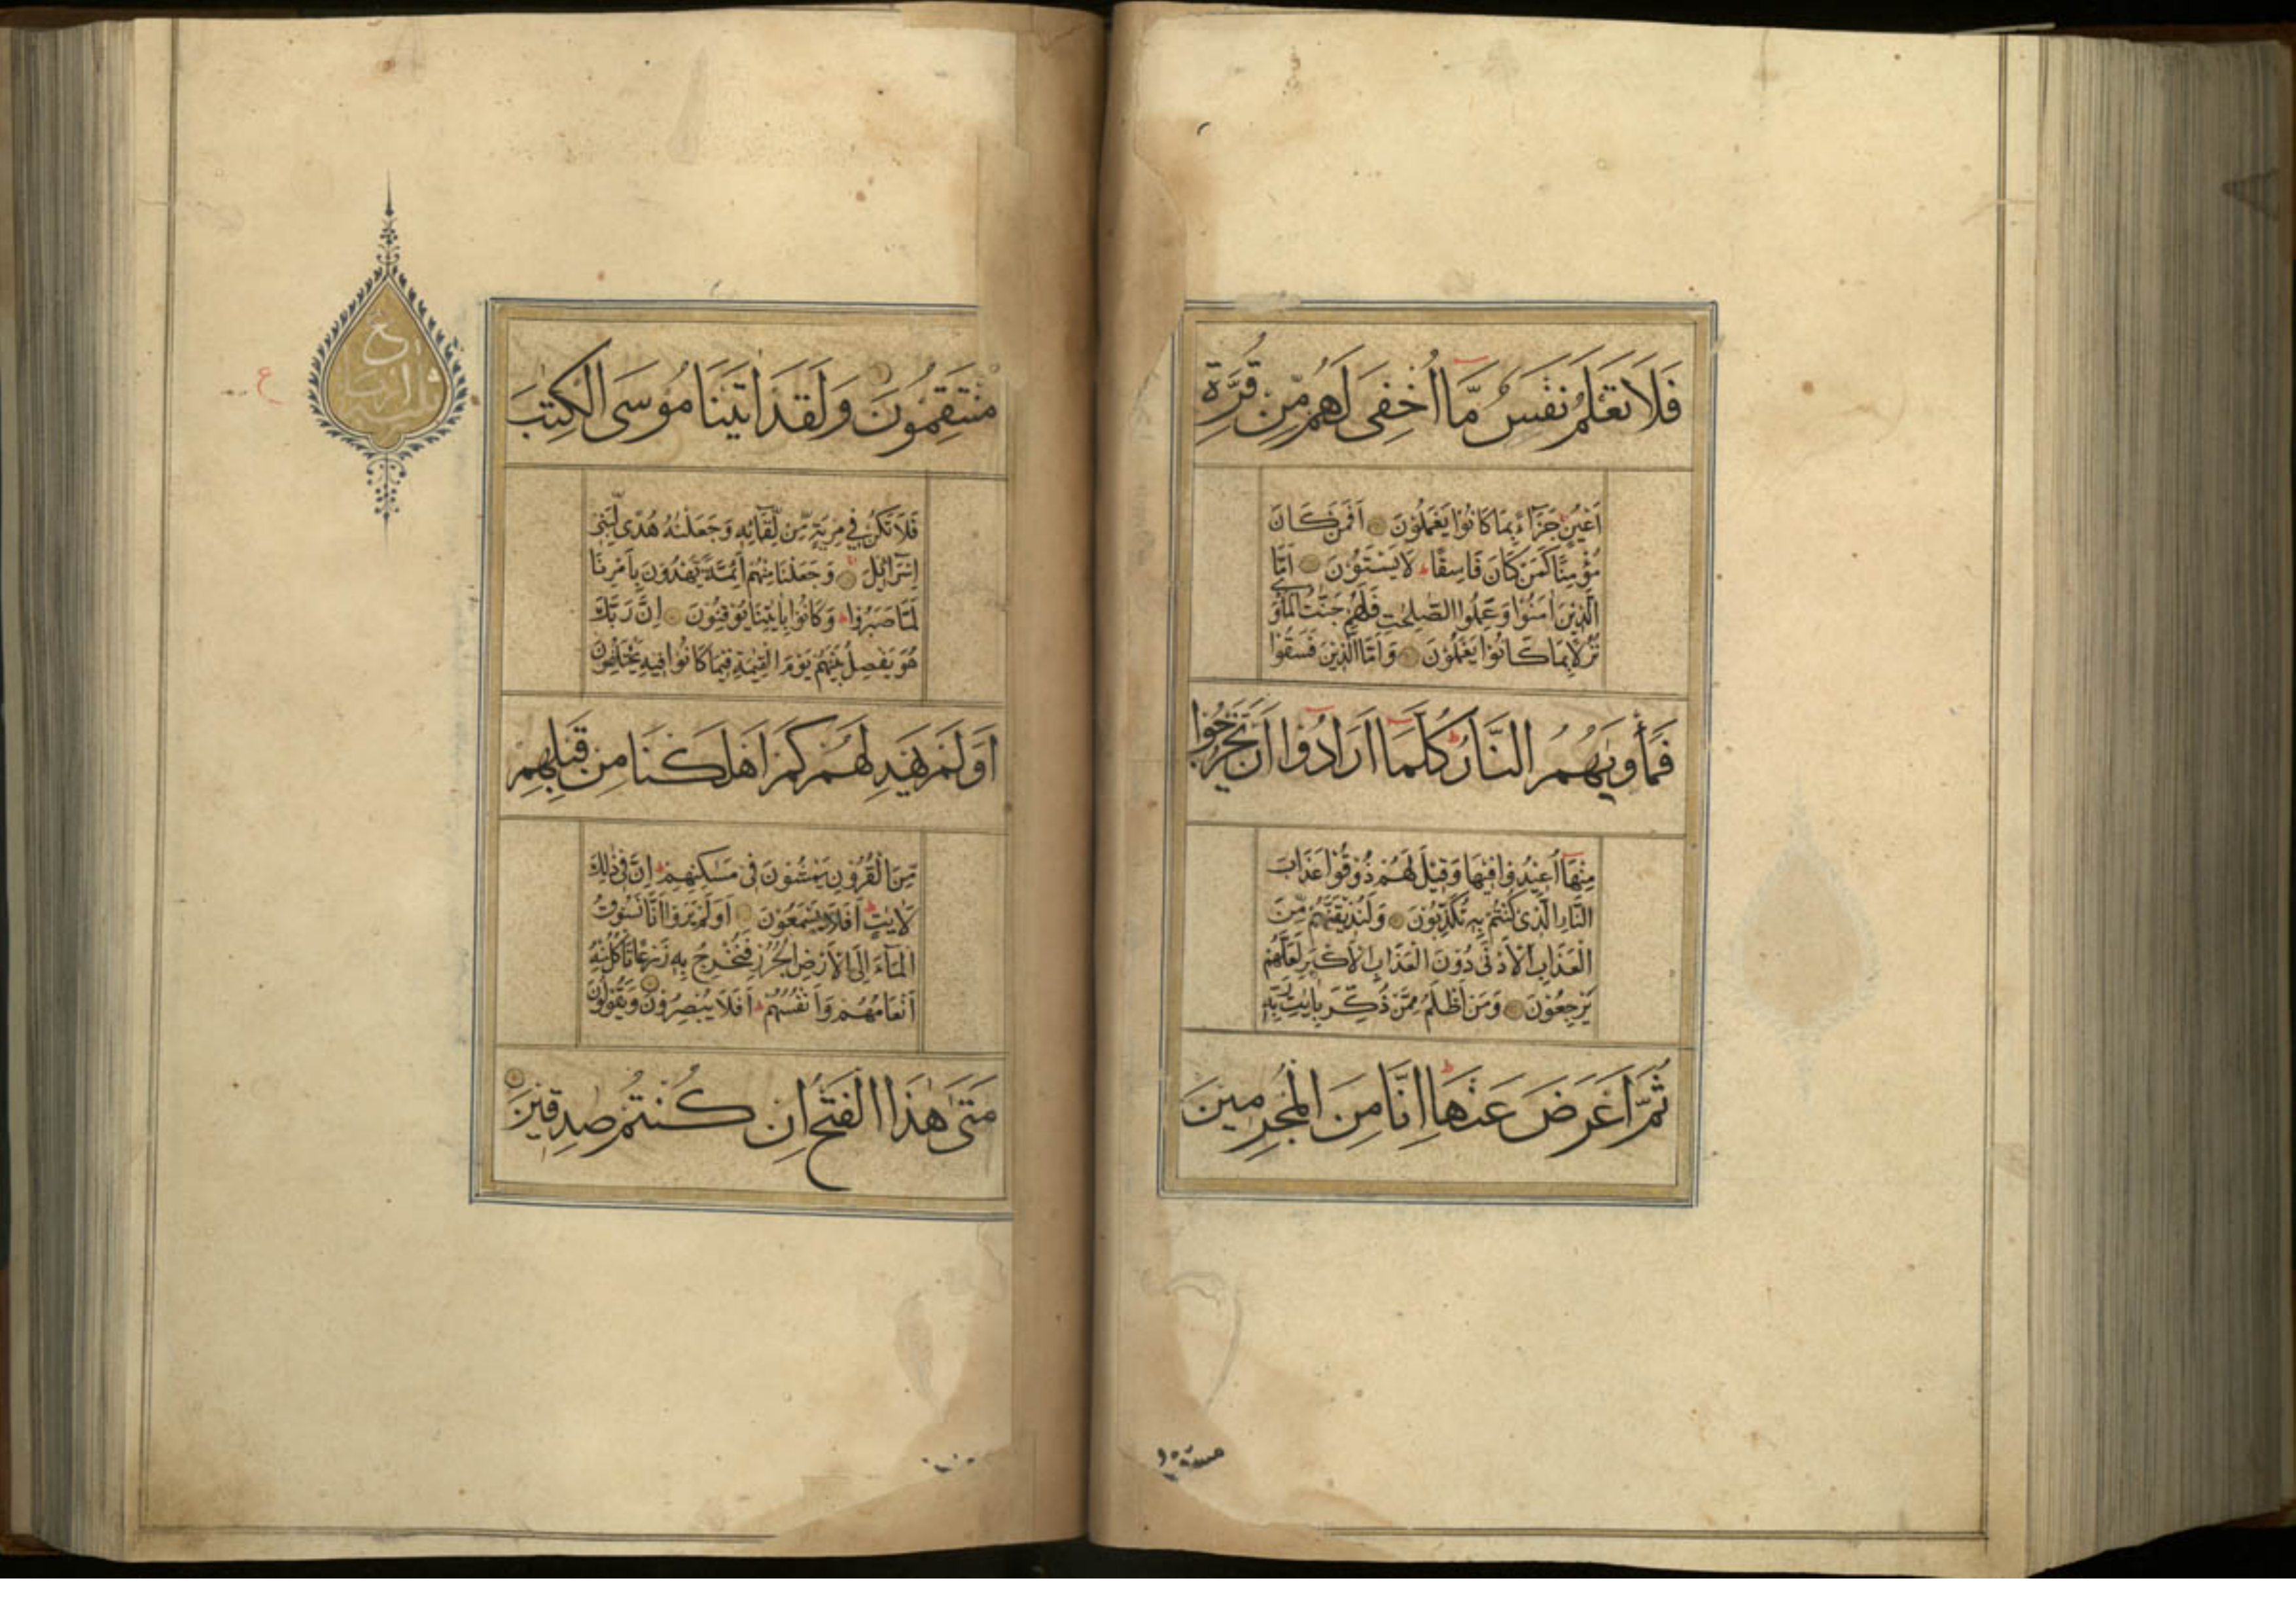 فَلَا تَعْلَمُ نَفْسٌ مَّا أُخْفِىَ لَهُم مِّن قُرَّةِ
اَعْيُنٍ جَزَآءً بِمَا كَانُوْا يَعْمَلُوْنَ اَفَمَنْ كَانَ
مُؤْمِنًا كَمَنْ كَانَ فَاسِقًا لَا يَسْتَوٗنَ اَمَّا
الَّذِيْنَ اٰمَنُوْا وَعَمِلُوا الصّٰلِحٰتِ فَلَهُمْ جَنّٰتُ الْمَاْوٰى
نُزُلًا بِمَا كَانُوْا يَعْمَلُوْنَ وَاَمَّا الَّذِيْنَ فَسَقُوْا
فَمَأْوٰىهُمُ النَّارُ كُلَّمَا اَرَادُوا اَنْ يَخْرُجُوا
مِنْهَا اُعِيْدُوْا فِيْهَا وَقِيْلَ لَهُمْ ذُوْقُوْا عَذَابَ
النَّارِ الَّذِىْ كُنْتُمْ بِهٖ تُكَذِّبُوْنَ وَلَنُذِيْقَنَّهُمْ مِّنَ
الْعَذَابِ الْاَدْنٰى دُوْنَ الْعَذَابِ الْاَكْبَرِ لَعَلَّهُمْ
يَرْجِعُوْنَ وَمَنْ اَظْلَمُ مِمَّنْ ذُكِّرَ بِاٰيٰتِ رَبِّهٖ
ثُمَّ اَعْرَضَ عَنْهَا اِنَّا مِنَ الْمُجْرِمِيْنَ
مُنْتَقِمُوْنَ وَلَقَدْ اٰتَيْنَا مُوْسَى الْكِتٰبَ
فَلَا تَكُنْ فِيْ مِرْيَةٍ مِّنْ لِّقَآئِهٖ وَجَعَلْنٰهُ هُدًى لِّبَنِىْ
اِسْرَآئِيْلَ وَجَعَلْنَا مِنْهُمْ اَئِمَّةً يَّهْدُوْنَ بِاَمْرِنَا
لَمَّا صَبَرُوْا وَكَانُوْا بِاٰيٰتِنَا يُوْقِنُوْنَ اِنَّ رَبَّكَ
هُوَ يَفْصِلُ بَيْنَهُمْ يَوْمَ الْقِيٰمَةِ فِيْمَا كَانُوْا فِيْهِ يَخْتَلِفُوْنَ
اَوَلَمْ يَهْدِ لَهُمْ كَمْ اَهْلَكْنَا مِنْ قَبْلِهِمْ
مِّنَ الْقُرُوْنِ يَمْشُوْنَ فِىْ مَسٰكِنِهِمْ اِنَّ فِىْ ذٰلِكَ
لَاٰيٰتٍ اَفَلَا يَسْمَعُوْنَ اَوَلَمْ يَرَوْا اَنَّا نَسُوْقُ
الْمَآءَ اِلَى الْاَرْضِ الْجُرُزِ فَنُخْرِجُ بِهٖ زَرْعًا تَأْكُلُ مِنْهُ
اَنْعَامُهُمْ وَاَنْفُسُهُمْ اَفَلَا يُبْصِرُوْنَ وَيَقُوْلُوْنَ
مَتٰى هٰذَا الْفَتْحُ اِنْ كُنْتُمْ صٰدِقِيْنَ
ع